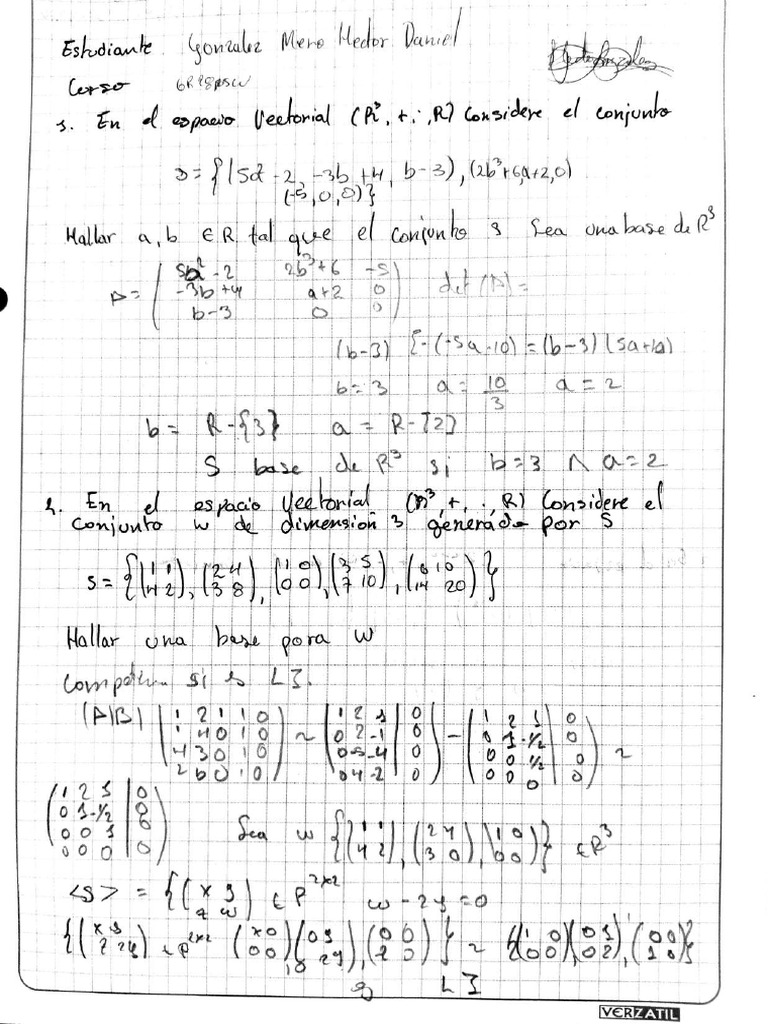 Estudiante Gonzalez Mero Hector Daniel
Corso
1. En el espacio Vectorial (R³, +, ·, R) Considere el conjunto
S = {(5a² - 2, -3b + 4, b - 3), (2b³ + 6, a + 2, 0)
(-5, 0, 0)}
Hallar a, b ∈ R tal que el conjunto S sea una base de R³
A = ( 5a² - 2 2b³ + 6 -5 ) det (A) =
-3b + 4 a + 2 0
b - 3 0 0
(b-3) [-(-5a-10) = (b-3) (5a+10)
b = 3 a = 10/3 a = 2
b = R - {3} a = R - [2]
S base de R³ si b = 3 ∧ a = 2
2. En el espacio Vectorial (R³, +, ·, R) Considere el
Conjunto W de dimensión 3 generado por S
S = {(1 1 4 2), (2 4 3 8), (1 0 0 0), (3 5 7 10), (6 10 14 20)}
Hallar una base para W
si es LI.
(A|B) (1 2 1 1 0 ~ (1 2 1 | 0 - (1 2 1 | 0
1 4 0 1 0 0 2 -1 | 0 0 1 -1/2 | 0
4 3 0 1 0 0 -5 -4 | 0 0 0 1/2 | 0 ~
2 6 0 1 0) 0 4 -2 | 0) 0 0 0 | 0)
(1 2 1 | 0
0 1 -1/2 | 0
0 0 1 | 0 Sea W {(1 1 4 2), (2 4 3 0), (1 0 0 0)} ∈ R³
0 0 0 | 0)
<S> = {(x y z w) ∈ P²ˣ² w - 2y = 0
{(x y z 2y) ∈ P²ˣ² (x 0 0 0)(0 y 0 2y), (0 0 z 0)} ~ {(1 0 0 0)(0 1 0 2), (0 0 1 0)}
LI
VERZATIL